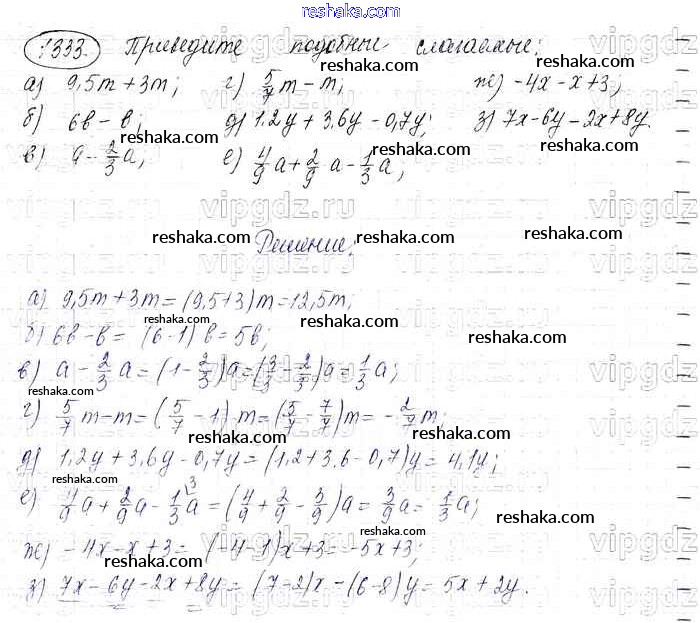 reshaka.com
1333. Приведите подобные слагаемые:
а) 9,5m + 3m; г) 5/7 m - m; ж) -4x - x + 3;
б) 6b - b; д) 1,2y + 3,6y - 0,7y; з) 7x - 6y - 2x + 8y.
reshaka.com reshaka.com reshaka.com
в) a - 2/3 a; е) 4/9 a + 2/9 a - 1/3 a;
reshaka.com reshaka.com
vipgdz.ru vipgdz.ru vipgdz
reshaka.com Решение. reshaka.com reshaka.com
а) 9,5m + 3m = (9,5 + 3)m = 12,5m;
reshaka.com reshaka.com
б) 6b - b = (6 - 1) b = 5b;
reshaka.com
в) a - 2/3 a = (1 - 2/3)a = (3/3 - 2/3)a = 1/3 a;
reshaka.com
г) 5/7 m - m = (5/7 - 1) m = (5/7 - 7/7)m = - 2/7 m;
reshaka.com reshaka.com
д) 1,2y + 3,6y - 0,7y = (1,2 + 3,6 - 0,7)y = 4,1y;
reshaka.com
е) 4/9 a + 2/9 a - 1/3 a = (4/9 + 2/9 - 3/9)a = 3/9 a = 1/3 a;
3
reshaka.com
reshaka.com
ж) -4x - x + 3 = (-4 - 1)x + 3 = -5x + 3;
reshaka.com reshaka.com
з) 7x - 6y - 2x + 8y = (7 - 2)x - (6 - 8)y = 5x + 2y.
reshaka.com